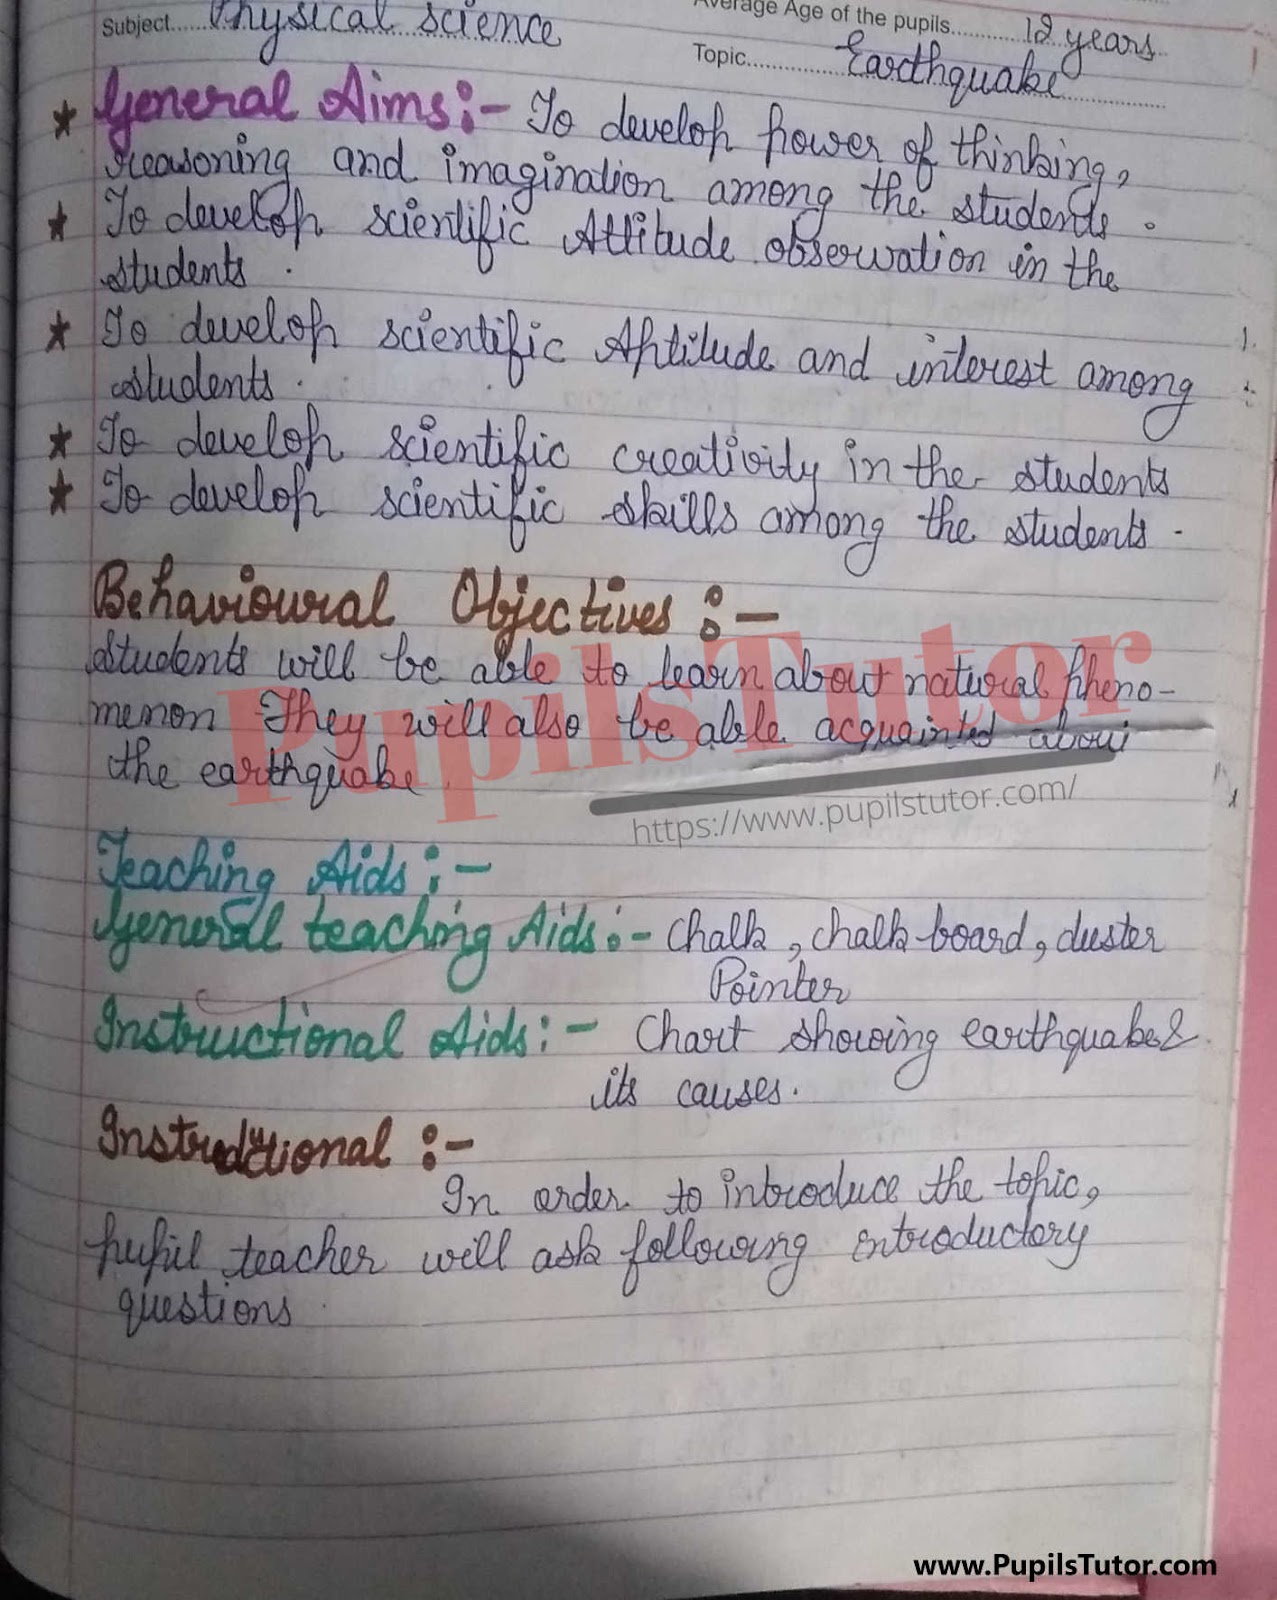 Subject......Physical science
Average Age of the pupils............12 years
Topic..................Earthquake
★ General Aims:- To develop power of thinking,
reasoning and imagination among the students.
★ To develop scientific Attitude observation in the
students.
★ To develop scientific Aptitude and interest among
students.
★ To develop scientific creativity in the students
★ To develop scientific skills among the students.
Behavioural Objectives :-
students will be able to learn about natural pheno-
menon They will also be able acquainted about
the earthquake.
PupilsTutor
https://www.pupilstutor.com/
Teaching Aids:-
General teaching Aids:- Chalk, chalk board, duster
Pointer
Instructional Aids:- Chart showing earthquake &
its causes.
Instructional :-
In order to introduce the topic,
pupil teacher will ask following introductory
questions.
www.PupilsTutor.com